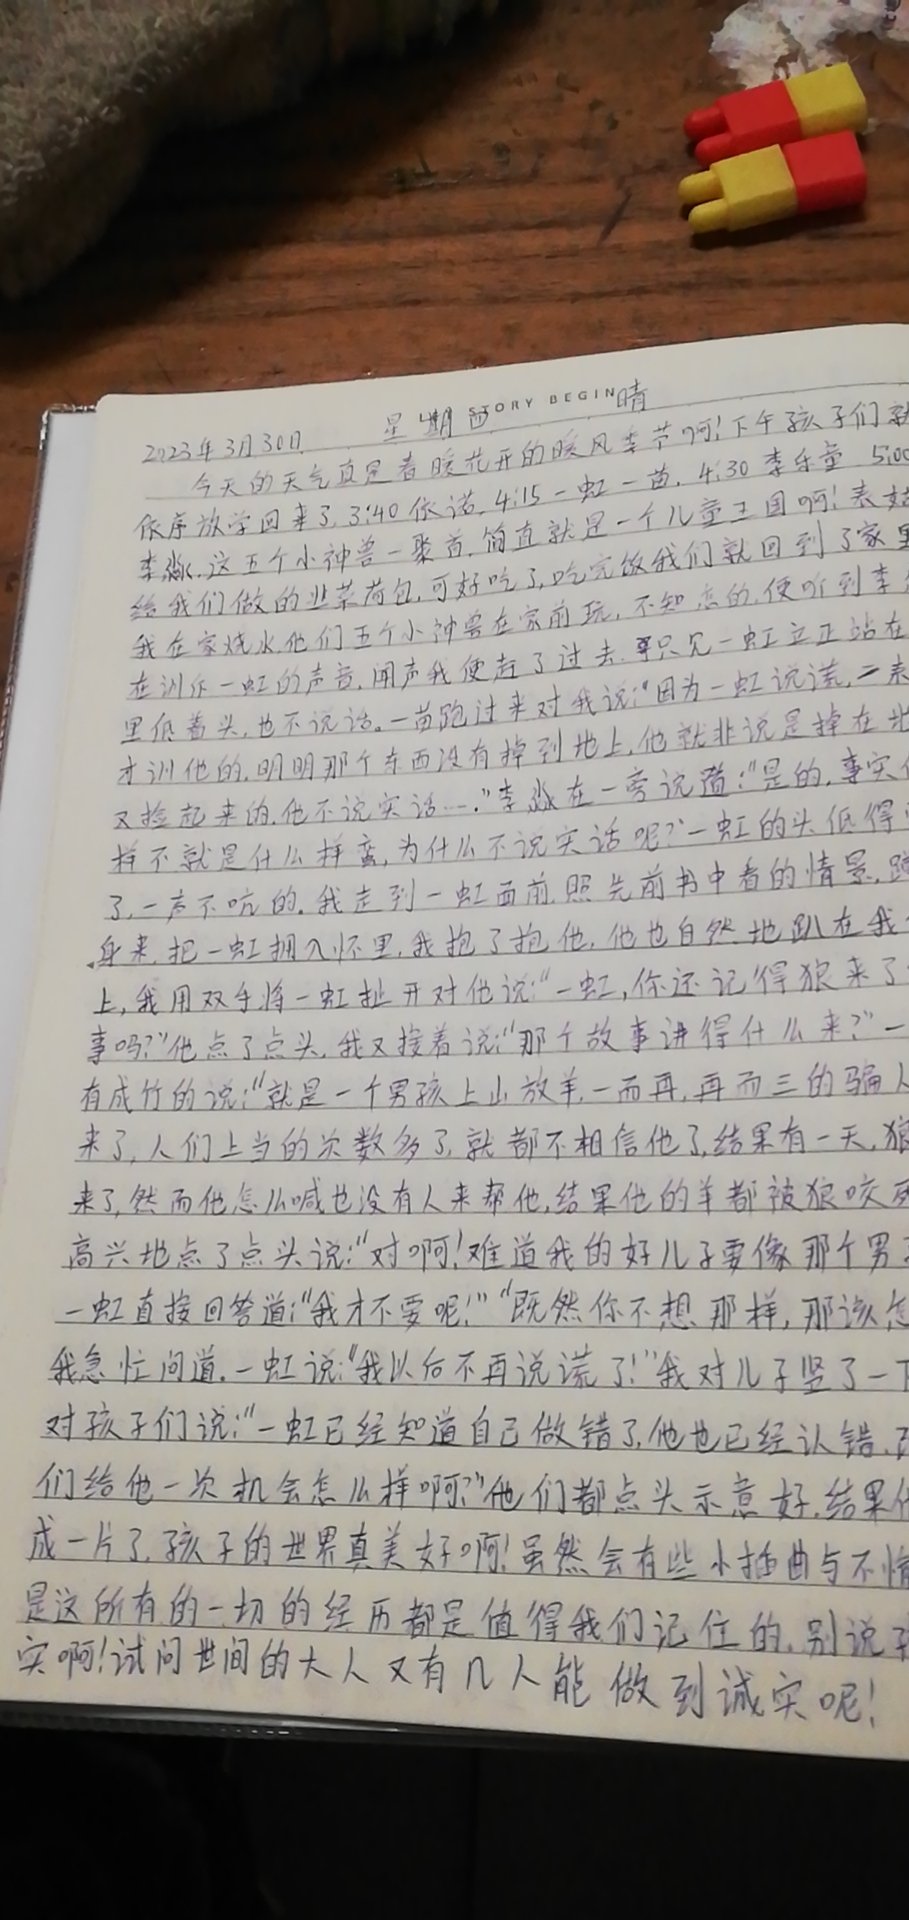 STORY BEGIN
2023年3月30日 星期四 晴
今天的天气真是春暖花开的暖风季节啊!下午孩子们就
依序放学回来了,3:40依诺,4:15一虹一苗,4:30李乐童 5:00
李淼,这五个小神兽一聚首,简直就是一个儿童王国啊!表姑
给我们做的韭菜荷包,可好吃了,吃完饭我们就回到了家里
我在家烧水,他们五个小神兽在家前玩,不知怎的,便听到李
在训斥一虹的声音,闻声我便赶了过去,只见一虹立正站在
里低着头,也不说话。一苗跑过来对我说:“因为一虹说谎,二表
才训他的,明明那个东西没有掉到地上,他就非说是掉在地
又捡起来的,他不说实话……”李淼在一旁说道:“是的,事实
样不就是什么样蛮,为什么不说实话呢?”一虹的头低得
了,一声不吭的。我走到一虹面前,照先前书中看的情景,蹲
身来,把一虹拥入怀里,我抱了抱他,他也自然地趴在我
上,我用双手将一虹扯开对他说:“一虹,你还记得狼来了
事吗?”他点了点头,我又接着说:“那个故事讲得什么来?”一
有成竹的说:“就是一个男孩上山放羊,一而再,再而三的骗人
来了,人们上当的次数多了,就都不相信他了,结果有一天,狼
来了,然而他怎么喊也没有人来帮他,结果他的羊都被狼咬死
高兴地点了点头说:“对啊!难道我的好儿子要像那个男
一虹直接回答道:“我才不要呢!”“既然你不想那样,那该怎
我急忙问道,一虹说:“我以后不再说谎了!”我对儿子竖了一下
对孩子们说:“一虹已经知道自己做错了,他也已经认错,
们给他一次机会怎么样啊?”他们都点头示意好,结果他
成一片了,孩子的世界真美好啊!虽然会有些小插曲与不情
是这所有的一切的经历都是值得我们记住的,别说孩
实啊!试问世间的大人又有几人能做到诚实呢!